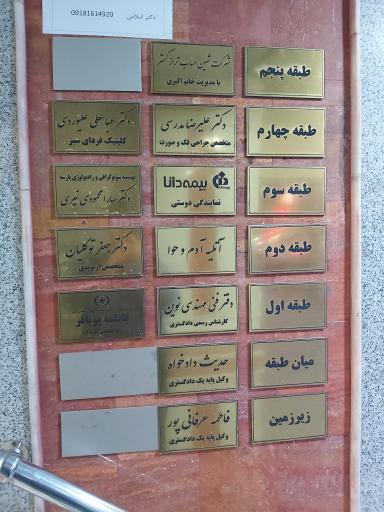 دکتر اسلامی 09181614920
طبقه پنجم
شرکت ثمین حساب تراز گستر
با مدیریت خانم اکبری
طبقه چهارم
دکتر علیرضا مدرسی
متخصص جراحی فک و صورت
دکتر عباسعلی علیاوردی
کلینیک فردای سبز
طبقه سوم
بیمه دانا
نمایندگی دوستی
موسسه سونوگرافی و رادیولوژی پارسه
دکتر سارا محمودی نیری
طبقه دوم
آتلیه آدم و حوا
دکتر جعفر توکلیان
متخصص ارتوپدی
طبقه اول
دفتر فنی مهندسی نوین
کارشناس رسمی دادگستری
فاطمه
میان طبقه
حدیث دادخواه
وکیل پایه یک دادگستری
زیرزمین
فاطمه عرفانی پور
وکیل پایه یک دادگستری